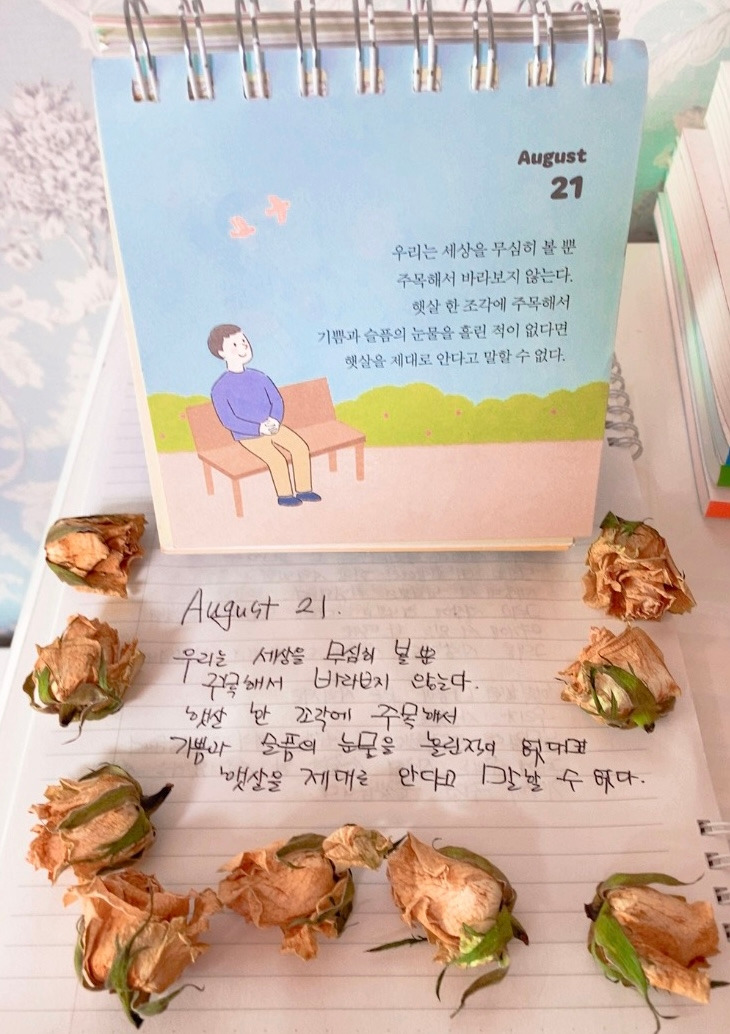 August
21
우리는 세상을 무심히 볼 뿐
주목해서 바라보지 않는다.
햇살 한 조각에 주목해서
기쁨과 슬픔의 눈물을 흘린 적이 없다면
햇살을 제대로 안다고 말할 수 없다.
August 21.
우리는 세상을 무심히 볼 뿐
주목해서 바라보지 않는다.
햇살 한 조각에 주목해서
기쁨과 슬픔의 눈물을 흘린적이 없다면
햇살을 제대로 안다고 말할 수 없다.